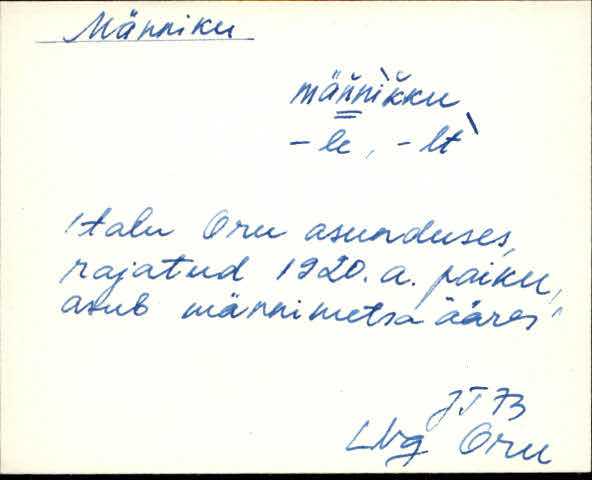 Männiku
männikku
-le, -lt
talu Oru asunduses,
rajatud 1920. a. paiku,
asub männimetsa ääres
JT 73
Lbg Oru